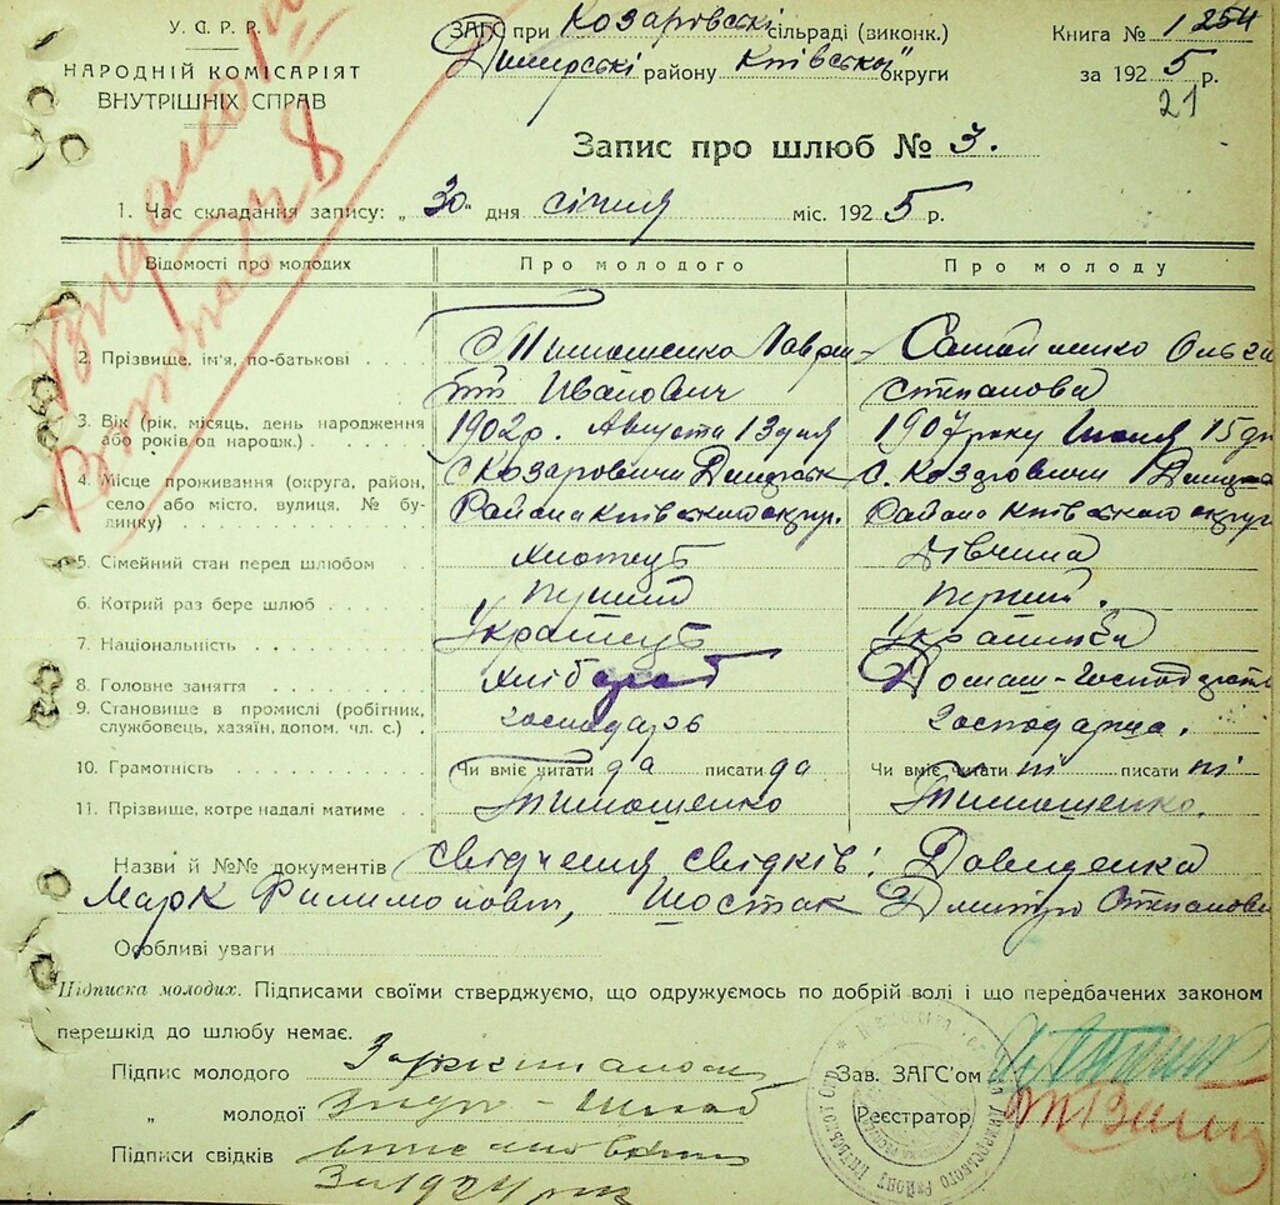 У. С. Р. Р.
НАРОДНІЙ КОМІСАРІЯТ
ВНУТРІШНІХ СПРАВ
ЗАГС при Козаровські сільраді (виконк.)
Димирські району Київської округи
Книга № 1 254
за 1925 р.
21
Запис про шлюб № 3.
1. Час складання запису: „30" дня січня міс. 1925 р.
Відомості про молодих Про молодого Про молоду
2. Прізвище, ім'я, по-батькові Тимошенко Лаврен- Ольга
тій Иванович Степанова
3. Вік (рік, місяць, день народження або років од народж.) 1902 р. Августа 13 дня 1907 року Июня 15 дн
4. Місце проживання (округа, район, село або місто, вулиця, № будинку) с. Козаровичи Димирськ с. Козаровичи
Района Київського округ. Района Київського округ
5. Сімейний стан перед шлюбом дівчина
6. Котрий раз бере шлюб перший перший.
7. Національність Українець Українка
8. Головне заняття Хлібороб Домаш-господарст
9. Становище в промислі (робітник, службовець, хазяїн, допом. чл. с.) господарь господарка.
10. Грамотність Чи вміє читати да писати да Чи вміє читати ні писати ні
11. Прізвище, котре надалі матиме Тимошенко Тимошенко.
Назви й №№ документів свідчення свідків: Давиденка
Марк Филимонов, Шостак Дмитро Степанови
Особливі уваги
Підписка молодих. Підписами своїми стверджуємо, що одружуємось по добрій волі і що передбачених законом
перешкід до шлюбу немає.
Підпис молодого
„ молодої
Підписи свідків
Зав. ЗАГС'ом
Реєстратор